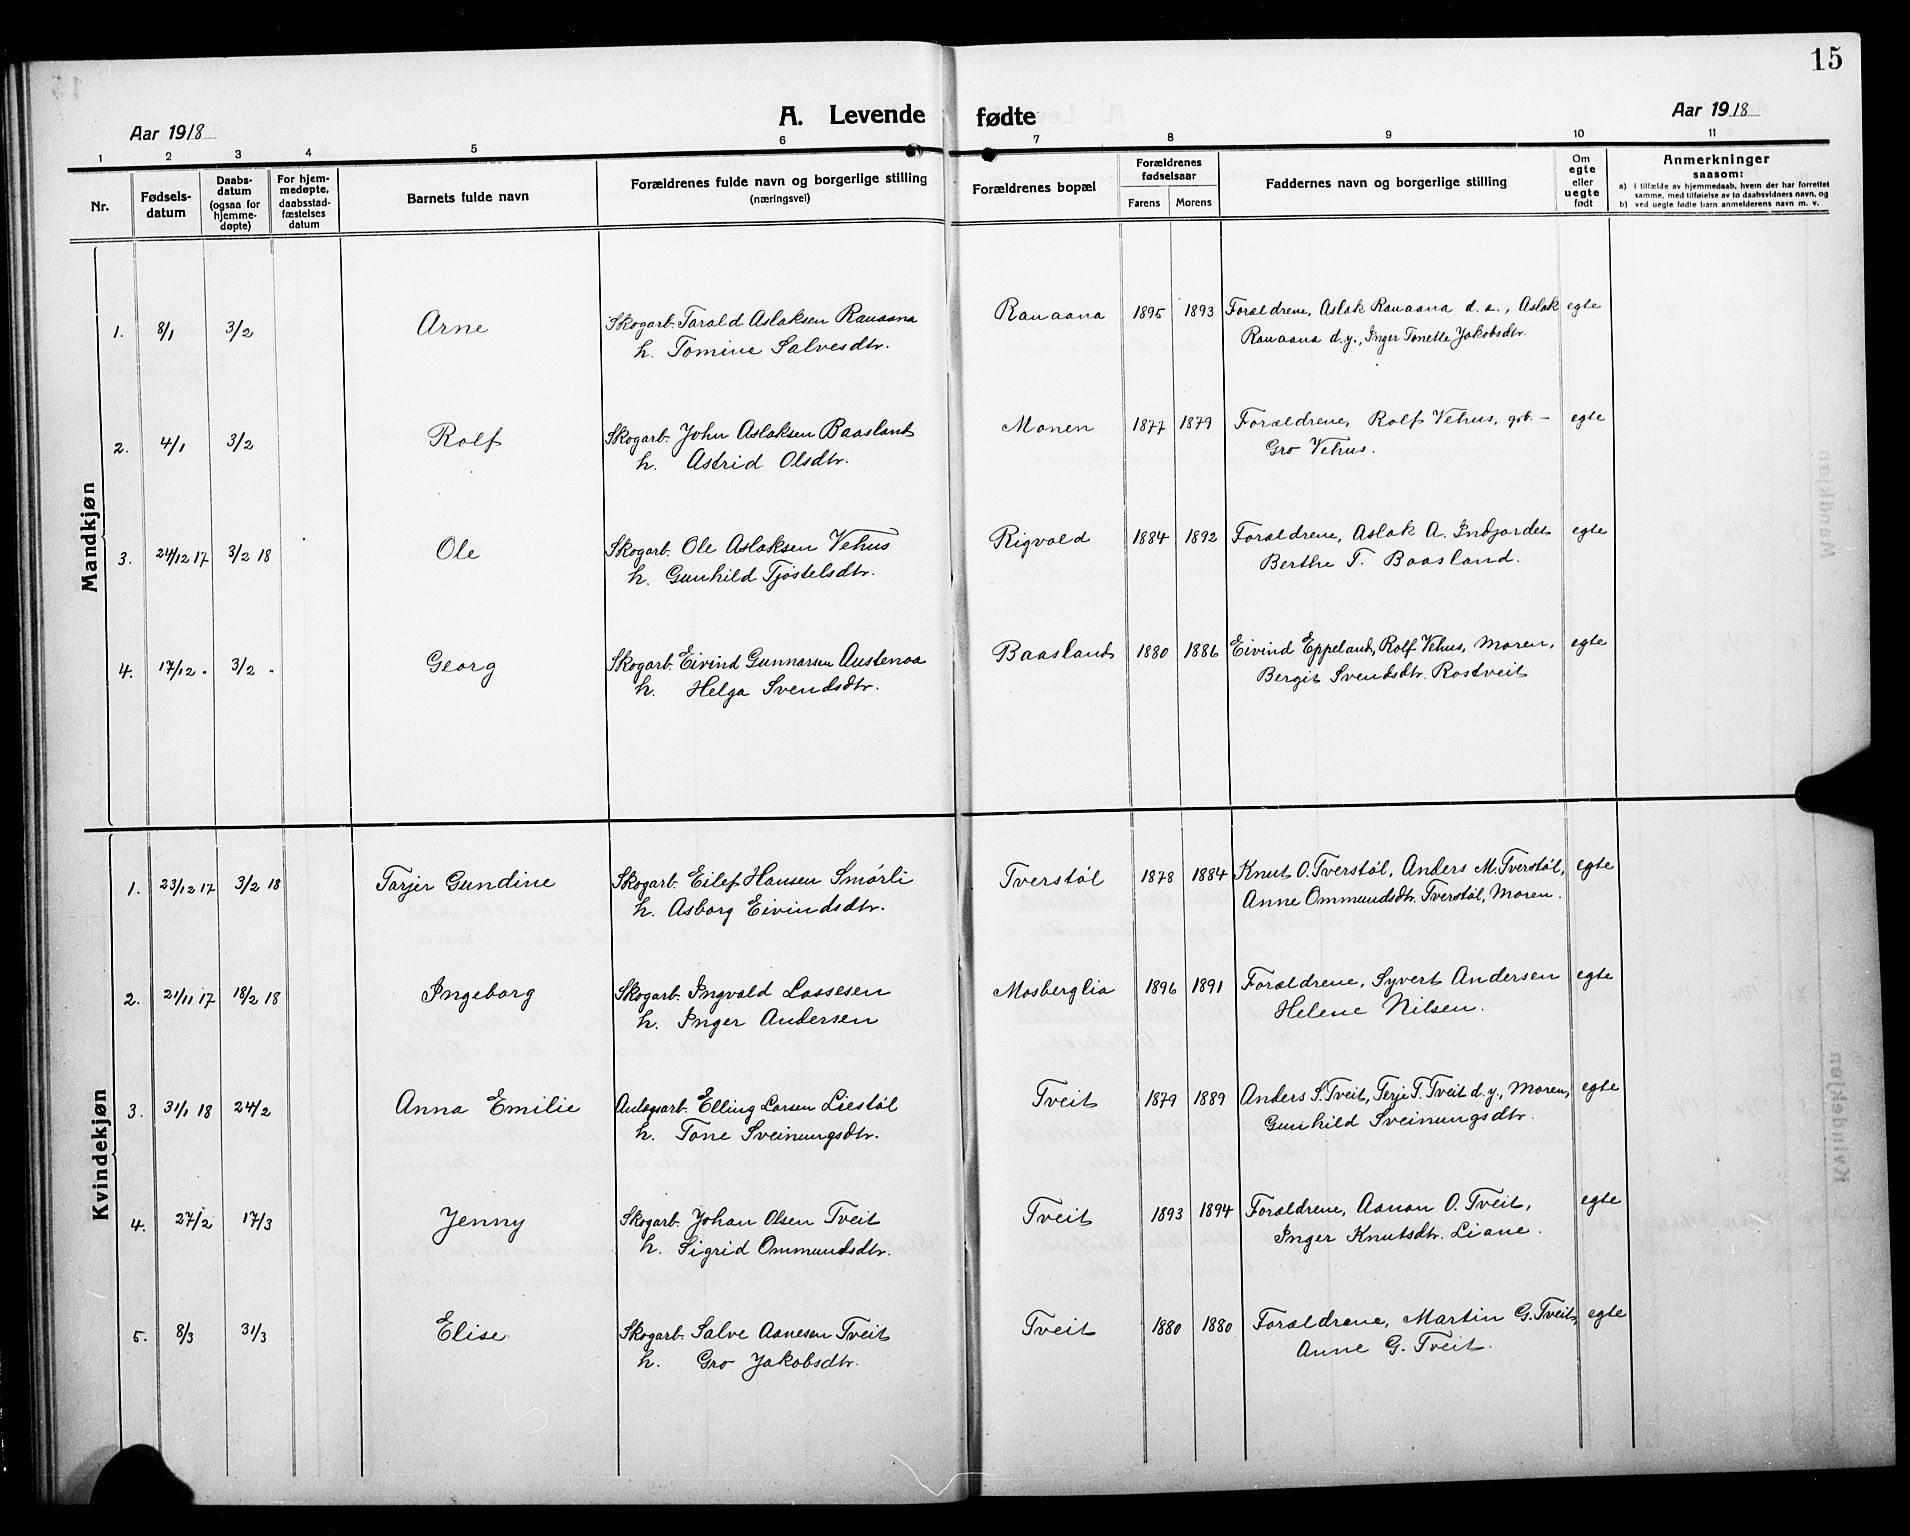 15
A. Levende fødte
Aar 1918
Aar 1918
1 2 3 4 5 6 7 8 9 10 11
Nr.
Fødsels-
datum
Daabs-
datum
(ogsaa for
hjemme-
døpte)
For hjem-
medøpte,
daabsstad-
fæstelses
datum
Barnets fulde navn
Forældrenes fulde navn og borgerlige stilling
(næringsvei)
Forældrenes bopæl
Forældrenes
fødselsaar
Farens Morens
Faddernes navn og borgerlige stilling
Om
egte
eller
uegte
født
Anmerkninger
saasom:
a) i tilfælde av hjemmedaab, hvem der har forrettet
samme, med tilføielse av to daabsvidners navn, og
b) ved uegte fødte barn anmelderens navn m. v.
Mandkjøn
1. 8/1 3/2 Arne Skogarb. Tarald Aslaksen Rauaana Rauaana 1895 1893 Forældrene, Aslak Rauaana d. e., Aslak egte
h. Tomine Salvesdtr. Rauaana d.y., Inger Tonette Jakobsdtr.
2. 4/1 3/2 Rolf Skogarb. John Aslaksen Baasland Monen 1877 1879 Forældrene, Rolf Vehus, grb. – egte
h. Astrid Olsdtr. Gro Vehus.
3. 24/12 17 3/2 18 Ole Skogarb. Ole Aslaksen Vehus Rigvald 1884 1892 Forældrene, Aslak A. Indjordet egte
h. Gunhild Tjøstelsdtr. Berthe T. Baasland.
4. 17/12 - 3/2 - Georg Skogarb. Eivind Gunnarsen Austenaa Baasland 1880 1886 Eivind Eppeland, Rolf Vehus, Moren, egte
h. Helga Svendsdtr. Bergit Svendsdtr. Rostveit
Kvindekjøn
1. 23/12 17 3/2 18 Tarjer Gundine Skogarb. Eilef Hansen Smørli Tverstøl 1878 1884 Knut O. Tverstøl, Anders M. Tverstøl, egte
h. Asborg Eivindsdtr. Anne Ommundsdtr. Tverstøl, Moren.
2. 21/11 17 18/2 18 Ingeborg Skogarb. Ingvald Lassesen Mosberglia 1896 1891 Forældrene, Syvert Andersen egte
h. Inger Andersen Helene Nilsen.
3. 31/1 18 24/2 Anna Emilie Anlegsarb. Elling Larsen Liestøl Tveit 1879 1889 Anders S. Tveit, Terje T. Tveit d.y., Moren, egte
h. Tone Sveinungsdtr. Gunhild Sveinungsdtr.
4. 27/2 17/3 Jenny Skogarb. Johan Olsen Tveit Tveit 1893 1894 Forældrene, Aanon O. Tveit, egte
h. Sigrid Ommundsdtr. Inger Knutsdtr. Liane.
5. 8/3 31/3 Elise Skogarb. Salve Aanesen Tveit Tveit 1880 1880 Forældrene, Martin G. Tveit, egte
h. Gro Jakobsdtr. Anne G. Tveit.